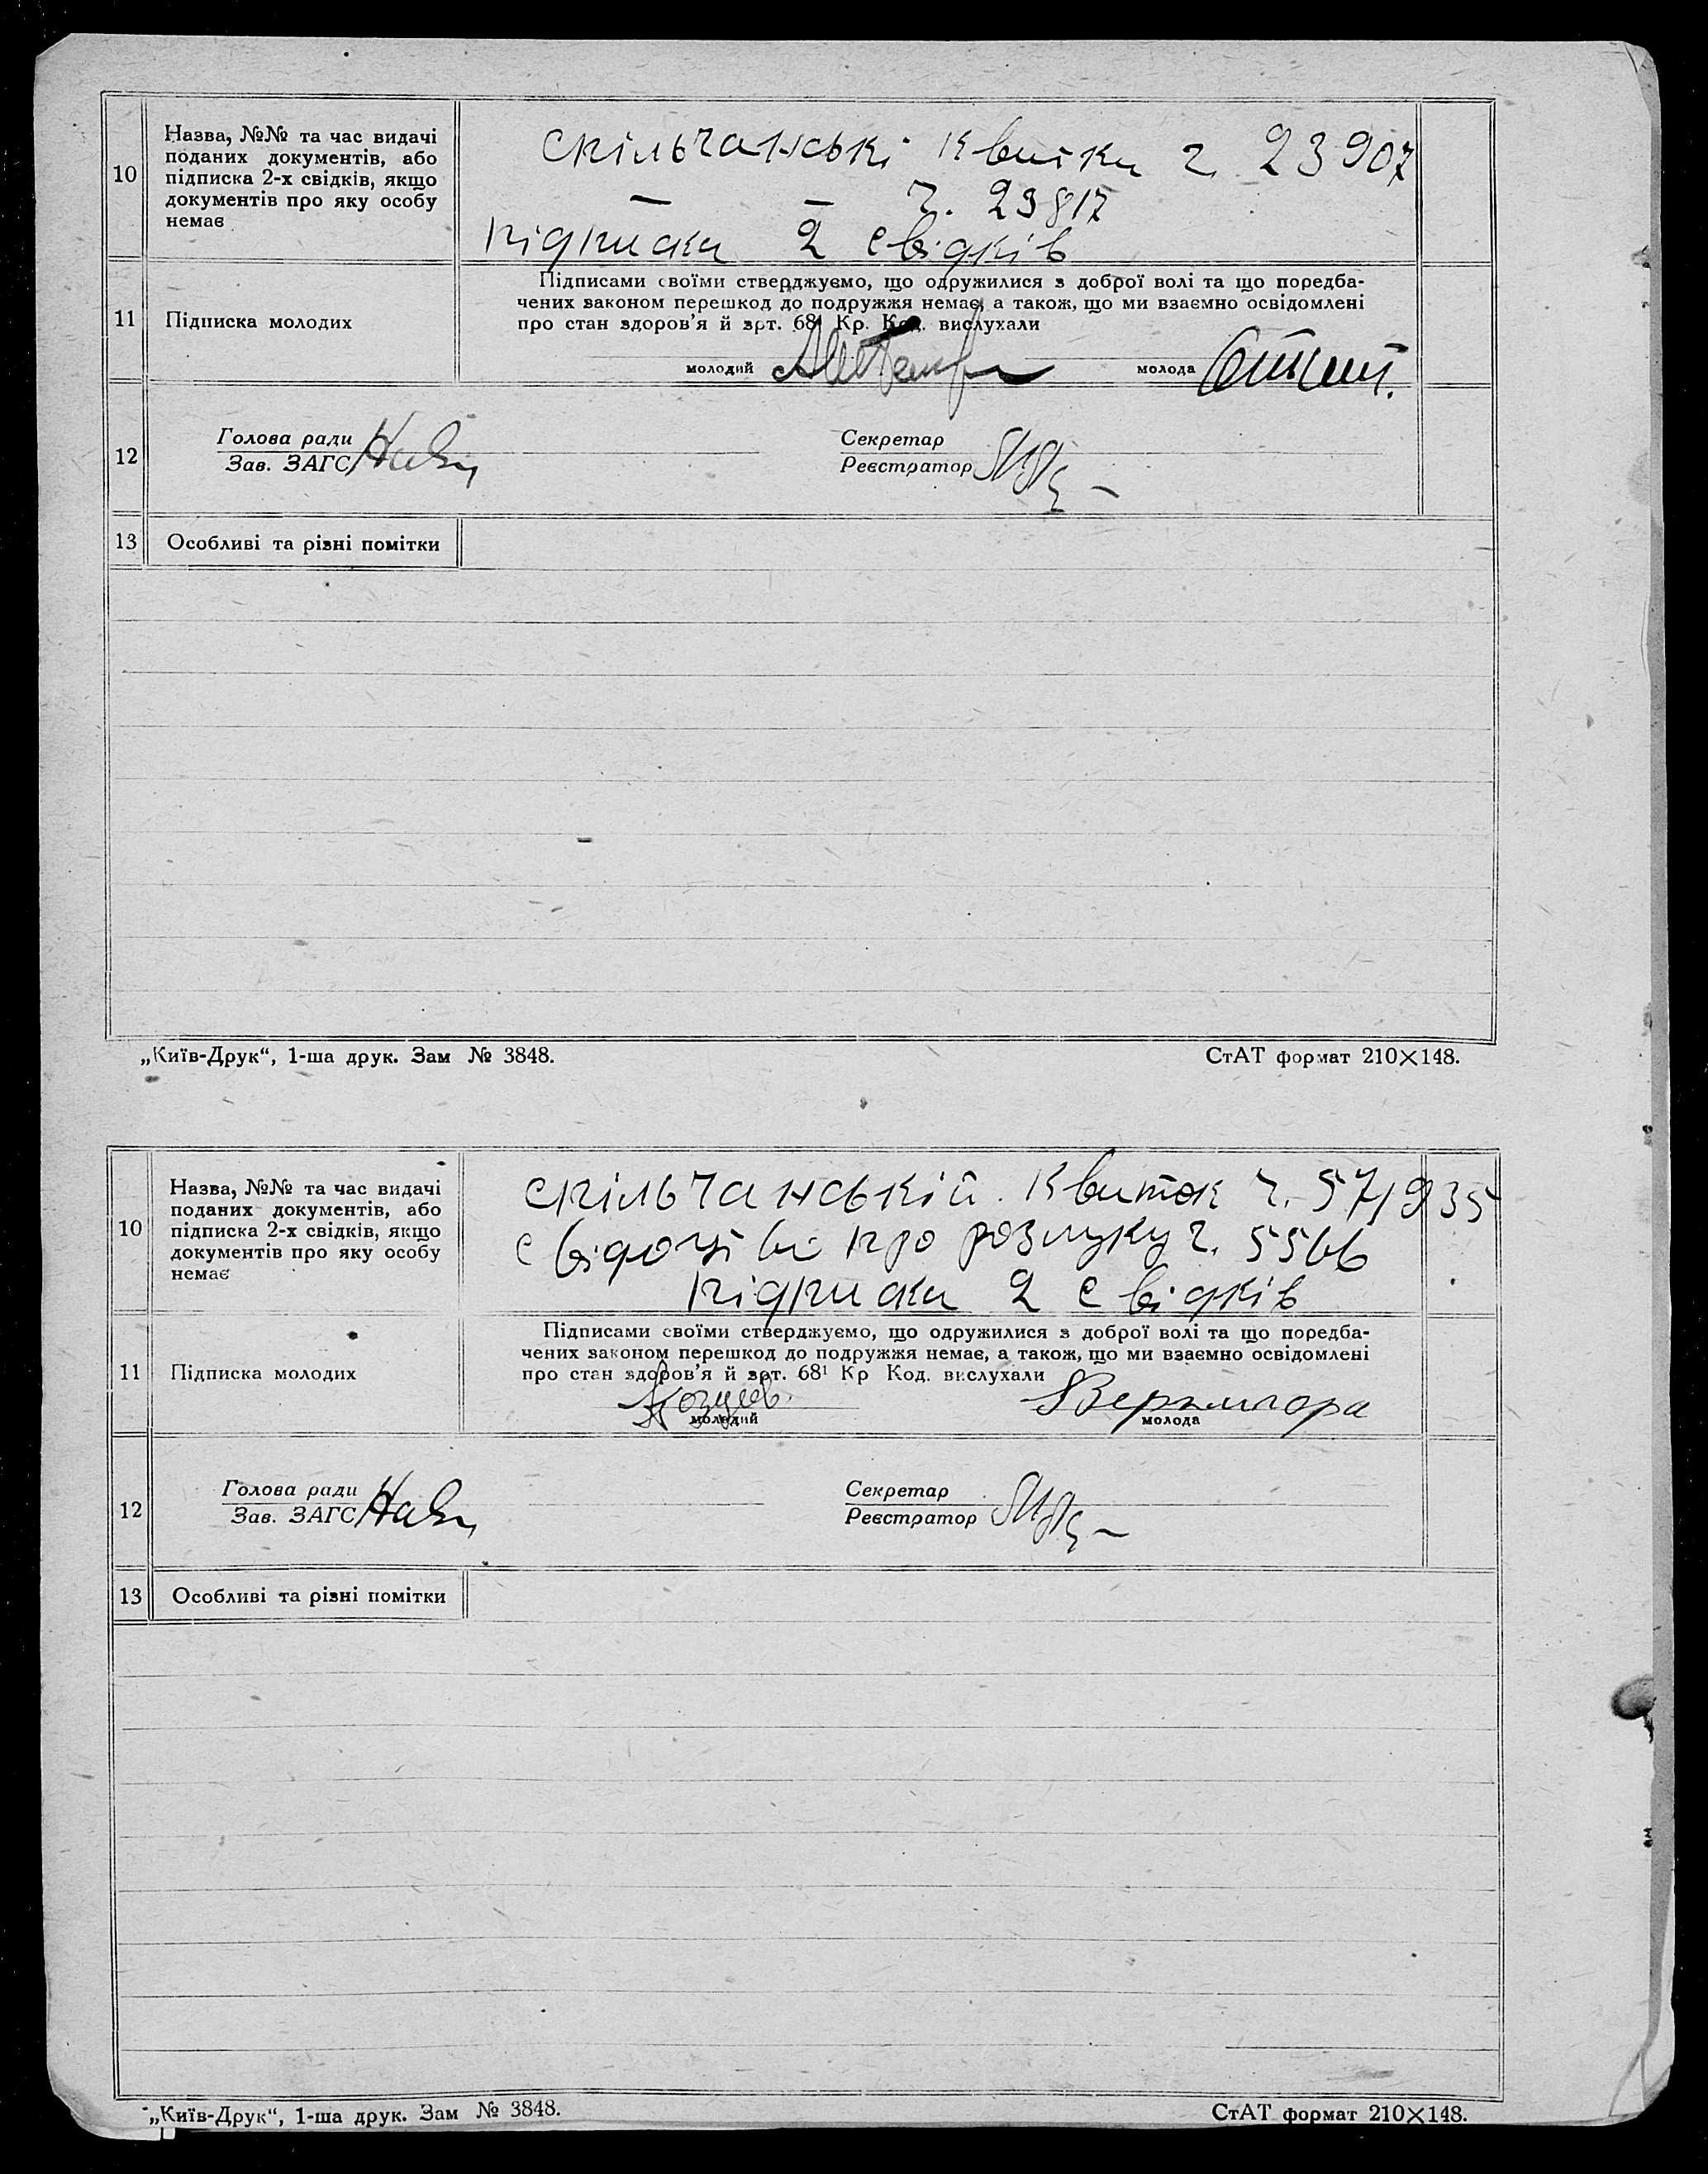 10
Назва, №№ та час видачі
поданих документів, або
підписка 2-х свідків, якщо
документів про яку особу
немає
спільчанські квитки ч. 23907
— — ч. 23817
підписка 2 свідків
11
Підписка молодих
Підписами своїми стверджуємо, що одружилися з доброї волі та що поредба-
чених законом перешкод до подружжя немає, а також, що ми взаємно освідомлені
про стан здоров’я й арт. 68¹ Кр. Код. вислухали
молодий
молода
12
Голова ради
Зав. ЗАГС
Секретар
Реєстратор
13
Особливі та різні помітки
„Київ-Друк“, 1-ша друк. Зам № 3848.
СтАТ формат 210×148.
10
Назва, №№ та час видачі
поданих документів, або
підписка 2-х свідків, якщо
документів про яку особу
немає
спільчанський квиток ч.
про розлуку ч. 5566
підписка 2 свідків
11
Підписка молодих
Підписами своїми стверджуємо, що одружилися з доброї волі та що поредба-
чених законом перешкод до подружжя немає, а також, що ми взаємно освідомлені
про стан здоров’я й арт. 68¹ Кр Код. вислухали
Вернигора
молодий
молода
12
Голова ради
Зав. ЗАГС
Секретар
Реєстратор
13
Особливі та різні помітки
„Київ-Друк“, 1-ша друк. Зам № 3848.
СтАТ формат 210×148.